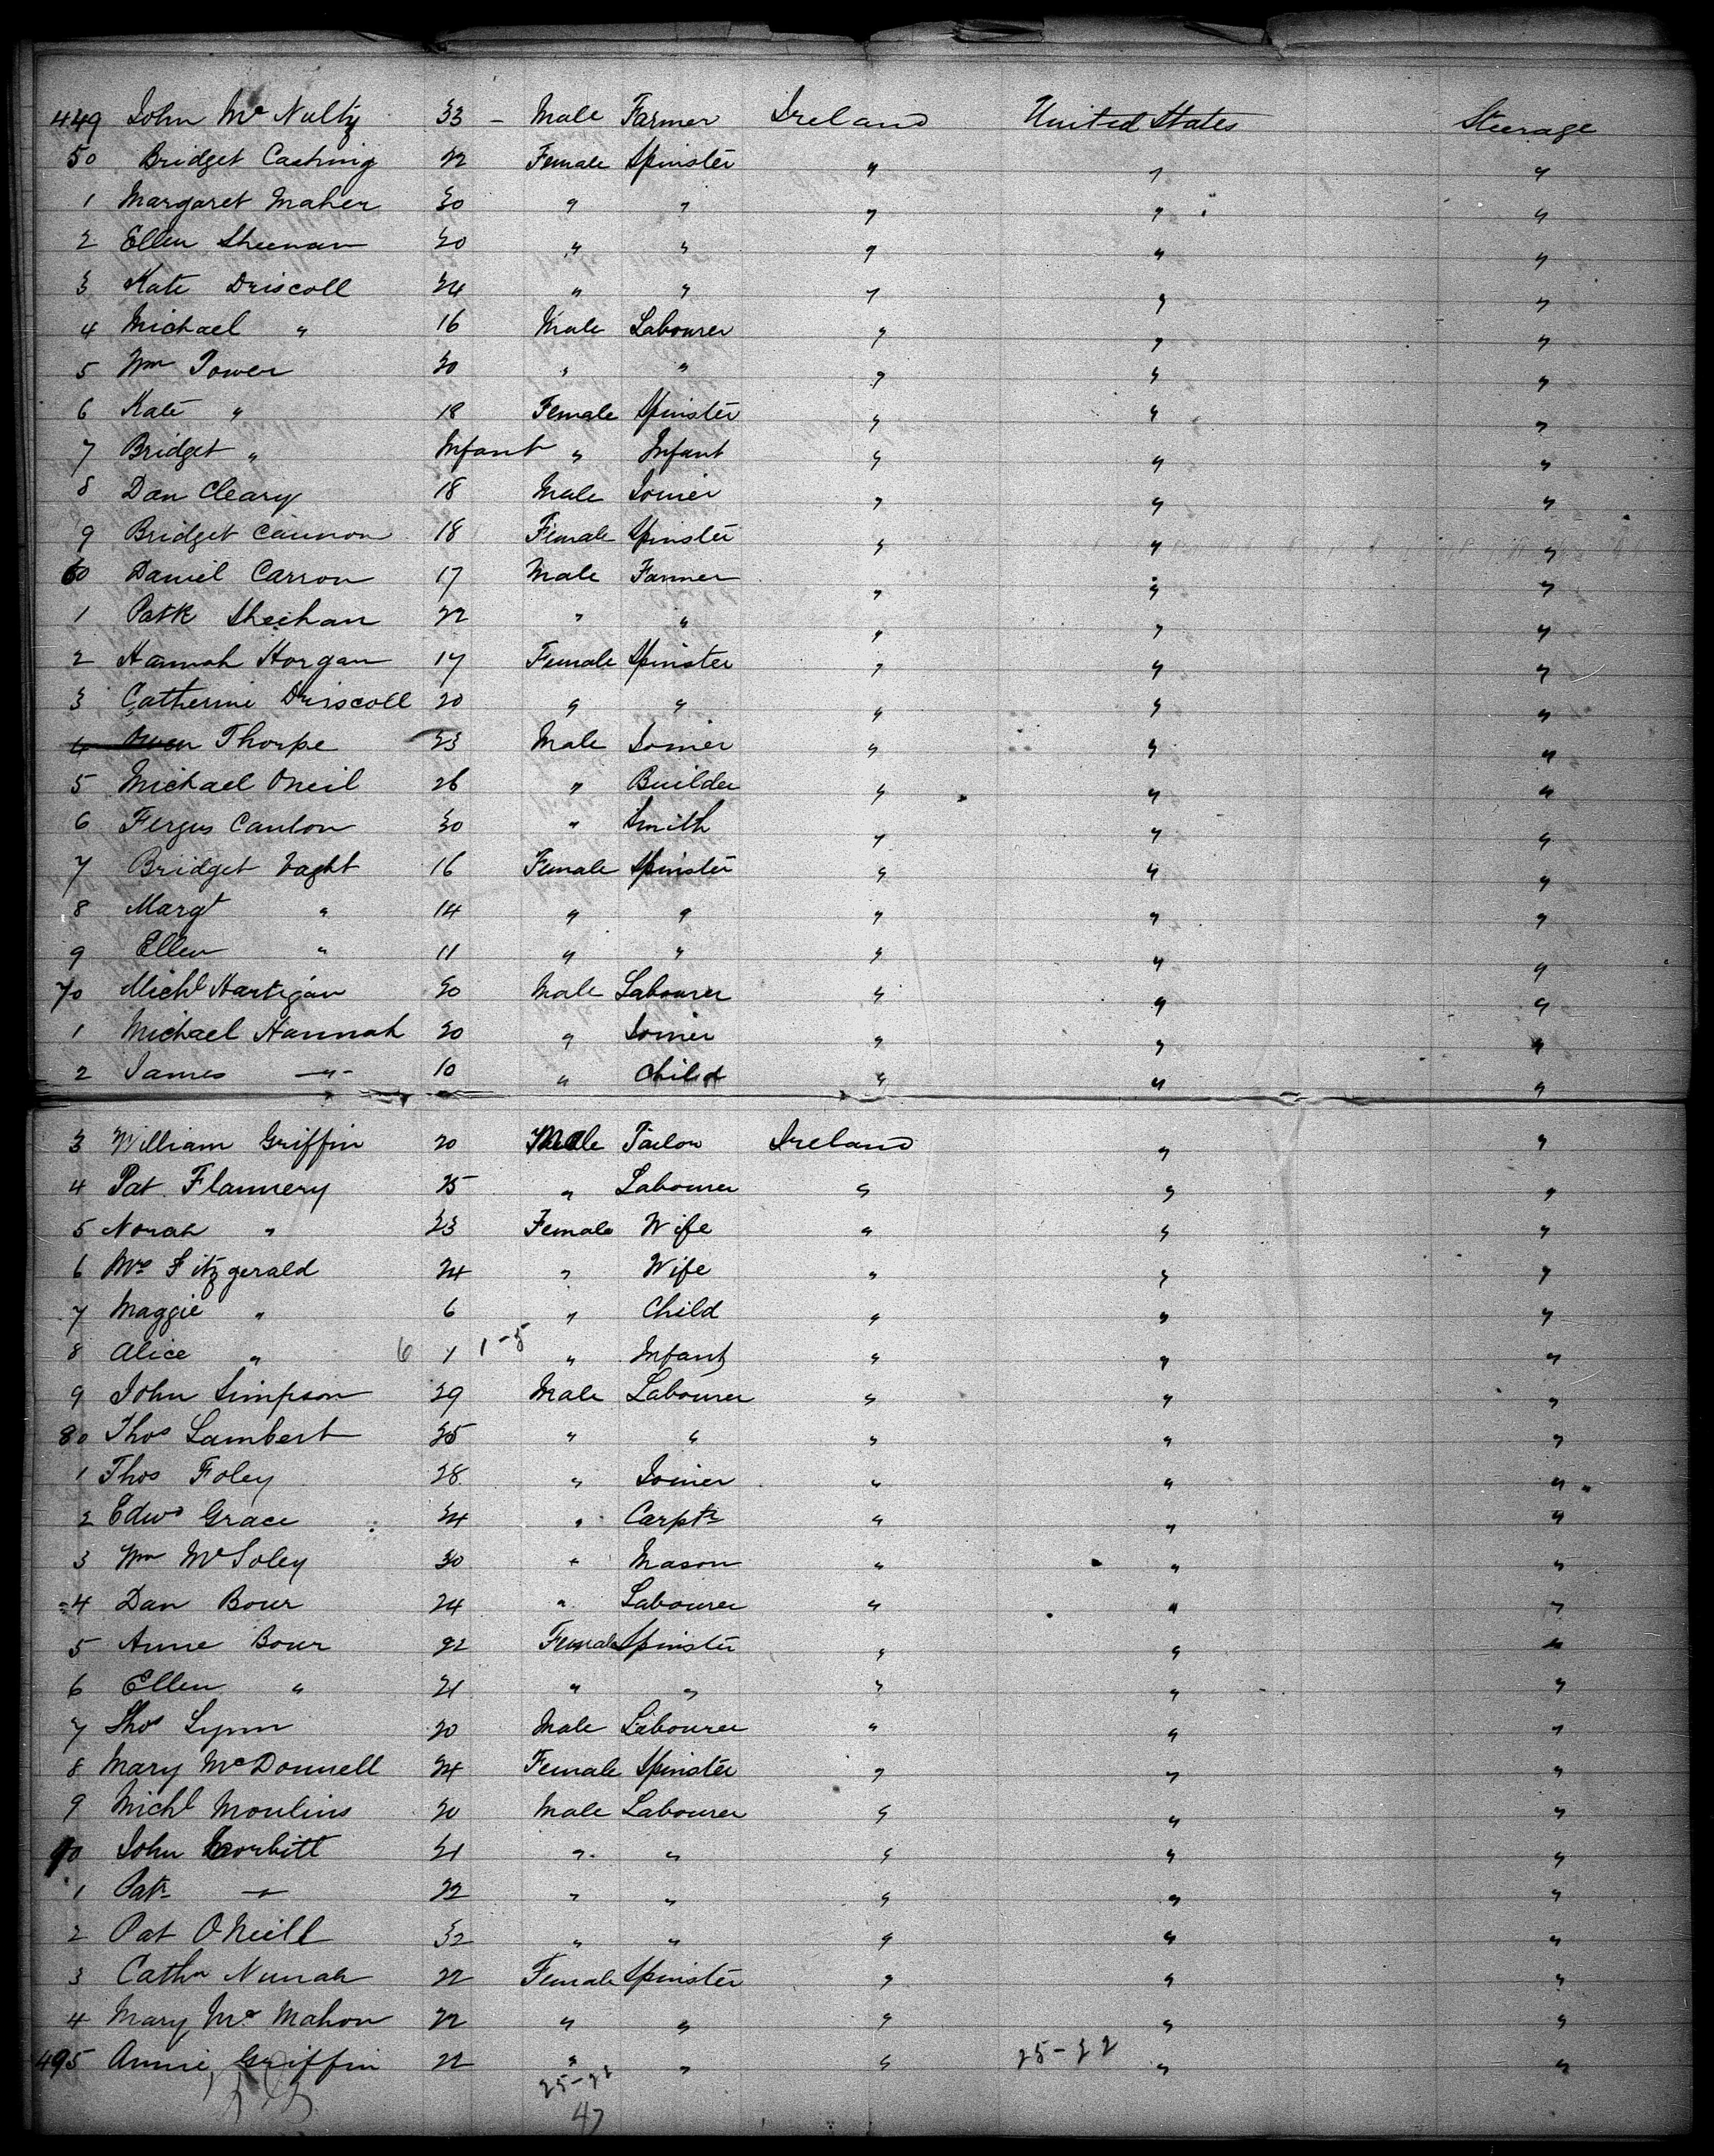 449 John McNulty 33 - Male Farmer Ireland United States Steerage
50 Bridget Cashing 22 Female Spinster " " "
1 Margaret Maher 30 " " " " "
2 Ellen Sheenan 20 " " " " "
3 Kate Driscoll 24 " " " " "
4 Michael " 16 Male Labourer " " "
5 Wm Power 30 " " " " "
6 Kate " 18 Female Spinster " " "
7 Bridget " Infant " Infant " " "
8 Dan Cleary 18 Male Joiner " " "
9 Bridget Cannon 18 Female Spinster " " "
60 Daniel Carron 17 Male Farmer " " "
1 Patk Sheehan 22 " " " " "
2 Hannah Horgan 17 Female Spinster " " "
3 Catherine Driscoll 20 " " " " "
4 Owen Thorpe 23 Male Joiner " " "
5 Michael Oneil 26 " Builder " " "
6 Fergus Canlon 30 " Smith " " "
7 Bridget 16 Female Spinster " " "
8 Margt " 14 " " " " "
9 Ellen " 11 " " " " "
70 Michl Hartigan 20 Male Labourer " " "
1 Michael Hannah 20 " Joiner " " "
2 James " 10 " Child " " "
3 William Griffin 20 Male Tailor Ireland " "
4 Pat Flannery 25 " Labourer " " "
5 Norah " 23 Female Wife " " "
6 Mrs Fitzgerald 24 " Wife " " "
7 Maggie " 6 " Child " " "
8 Alice " 6 1 1-5 " Infant " " "
9 John Simpson 29 Male Labourer " " "
80 Thos Lambert 25 " " " " "
1 Thos Foley 28 " Joiner " " "
2 Edwd Grace 24 " Carptr " " "
3 Wm 30 " Mason " " "
4 Dan Bour 24 " Labourer " " "
5 Anne Bour 22 Female Spinster " " "
6 Ellen " 21 " " " " "
7 Thos Lynn 20 Male Labourer " " "
8 Mary McDonnell 24 Female Spinster " " "
9 Michl Moulins 20 Male Labourer " " "
90 John Corbitt 21 " " " " "
1 Patk " 22 " " " " "
2 Pat ONeill 32 " " " " "
3 Cathn Nunah 22 Female Spinster " " "
4 Mary McMahon 22 " " " " "
495 Annie Griffin 22 " " " 25-22 " "
25-22
47